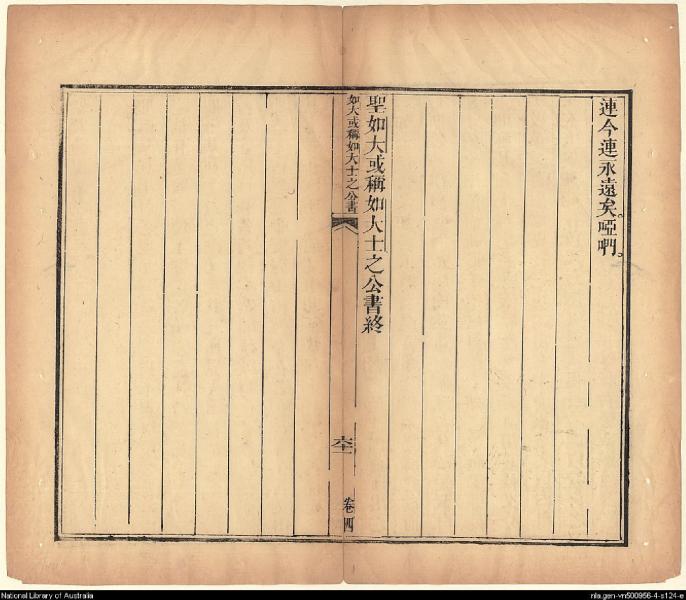 連今連永遠矣。啞們。
聖如大或稱如大士之公書終
如大或稱如大士之公書
卷四
National Library of Australia
nla.gen-vn500956-4-s124-e